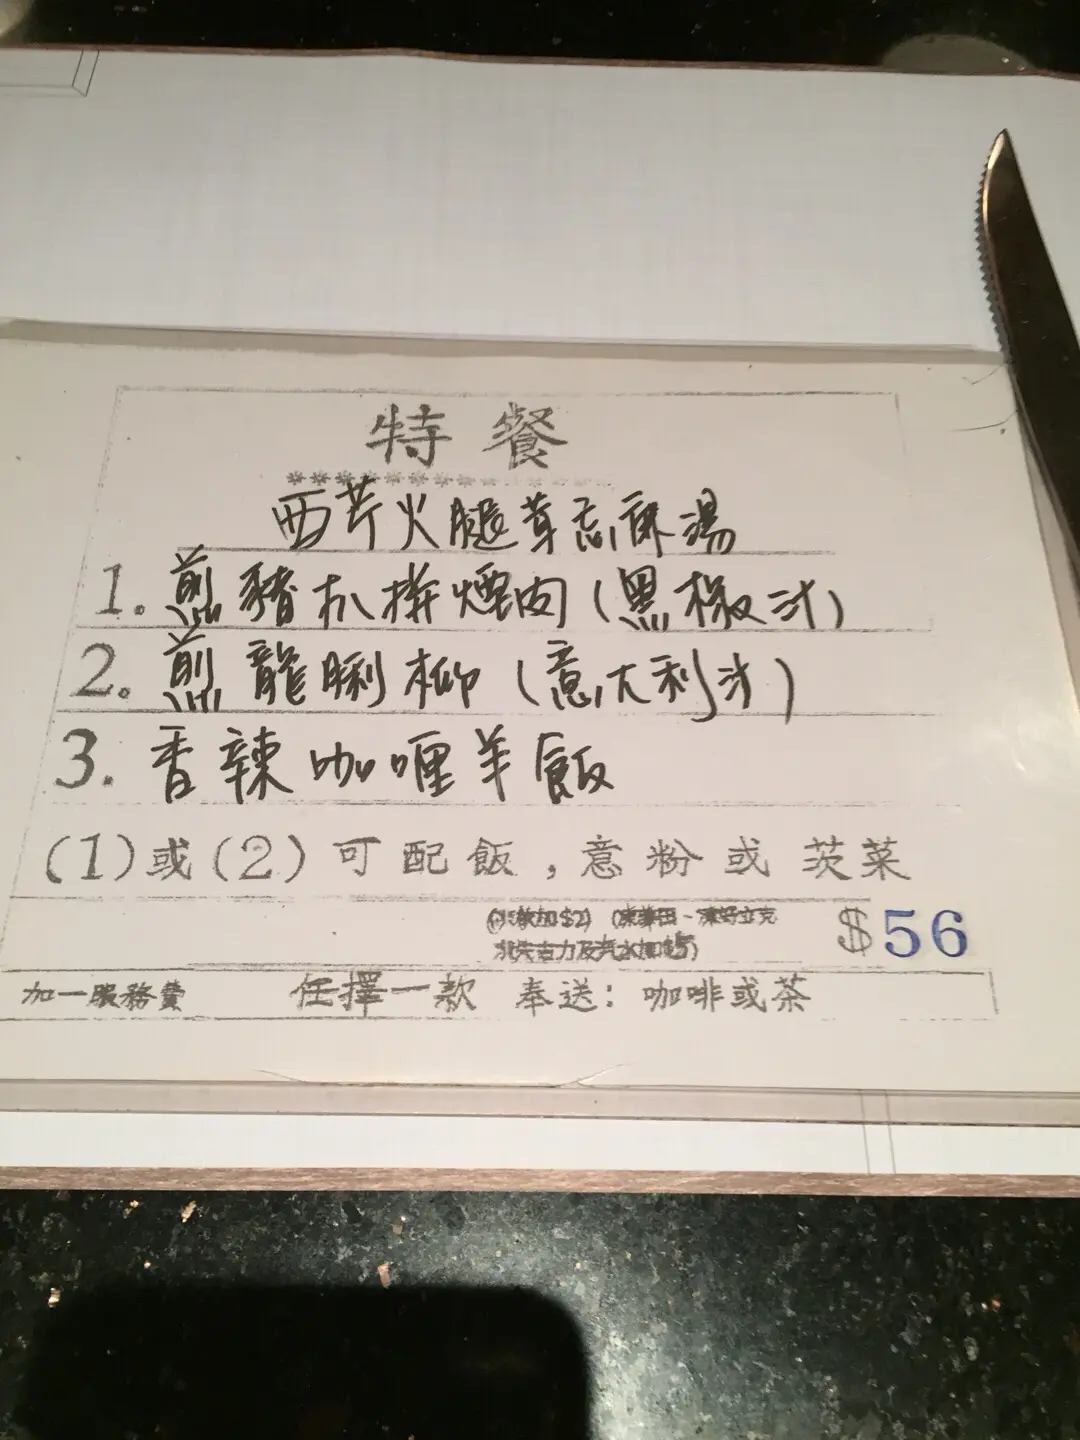 特餐
******************
西芹火腿茸忌廉湯
1. 煎豬扒拼煙肉(黑椒汁)
2. 煎龍脷柳(意大利汁)
3. 香辣咖喱羊飯
(1)或(2)可配飯,意粉或茨菜
(凍飲加$2)
朱古力及汽水加
$56
加一服務費 任擇一款 奉送:咖啡或茶